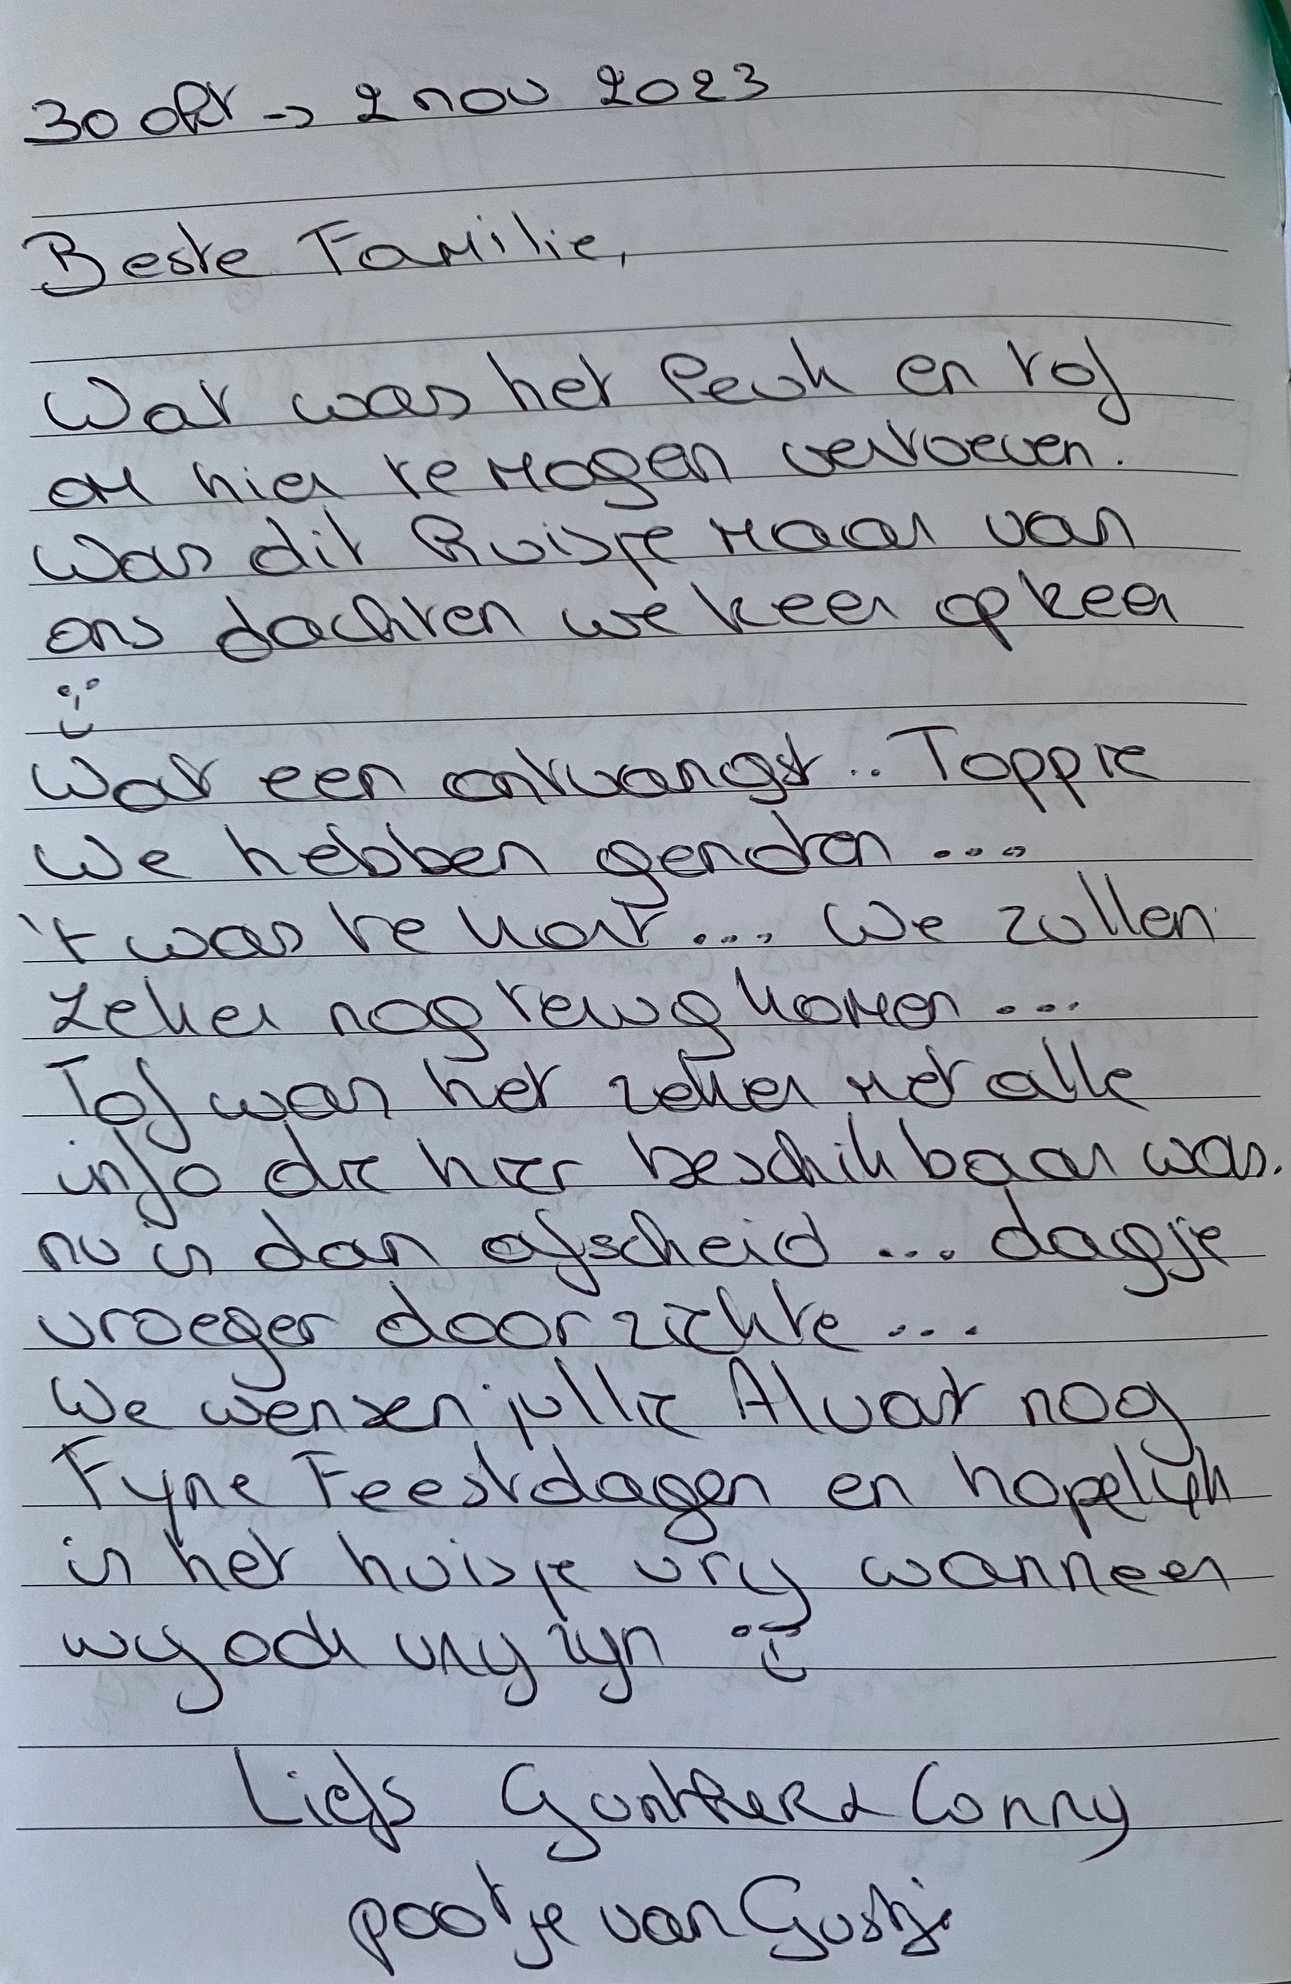 30 okt → 2 nov 2023
Beste Familie,
Wat was het leuk en tof
om hier te mogen vertoeven.
Was dit huisje maar van
ons dachten we keer op keer
:)
Wat een ontvangst.. Toppie
We hebben genoten ...
't was te kort ... We zullen
zeker nog terug komen ...
Tof was het zeker met alle
info die hier beschikbaar was.
nu is dan afscheid ... dagje
vroeger door ziekte ...
We wensen jullie Alvast nog
Fyne Feestdagen en hopelijk
is het huisje vry wanneer
wy ook vry zyn :)
Liefs Gunther & Conny
pootje van Gustje